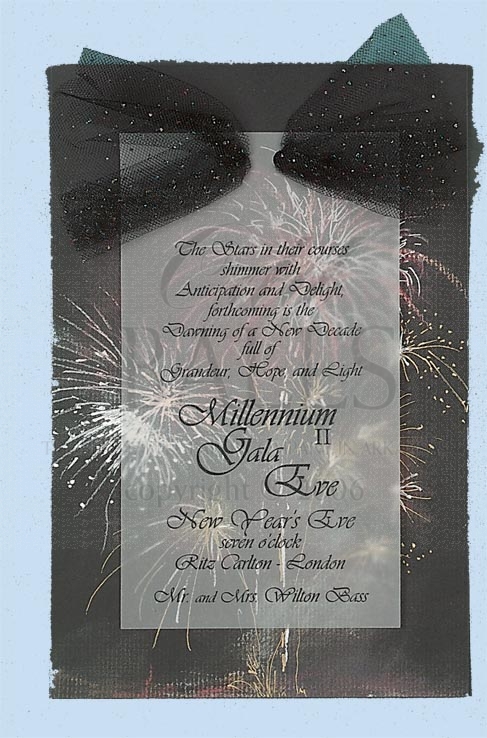 The Stars in their courses
shimmer with
Anticipation and Delight,
forthcoming is the
Dawning of a New Decade
full of
Grandeur, Hope, and Light
Millennium
II
Gala
Eve
New Year's Eve
seven o'clock
Ritz Carlton - London
Mr. and Mrs. Wilton Bass
copyright